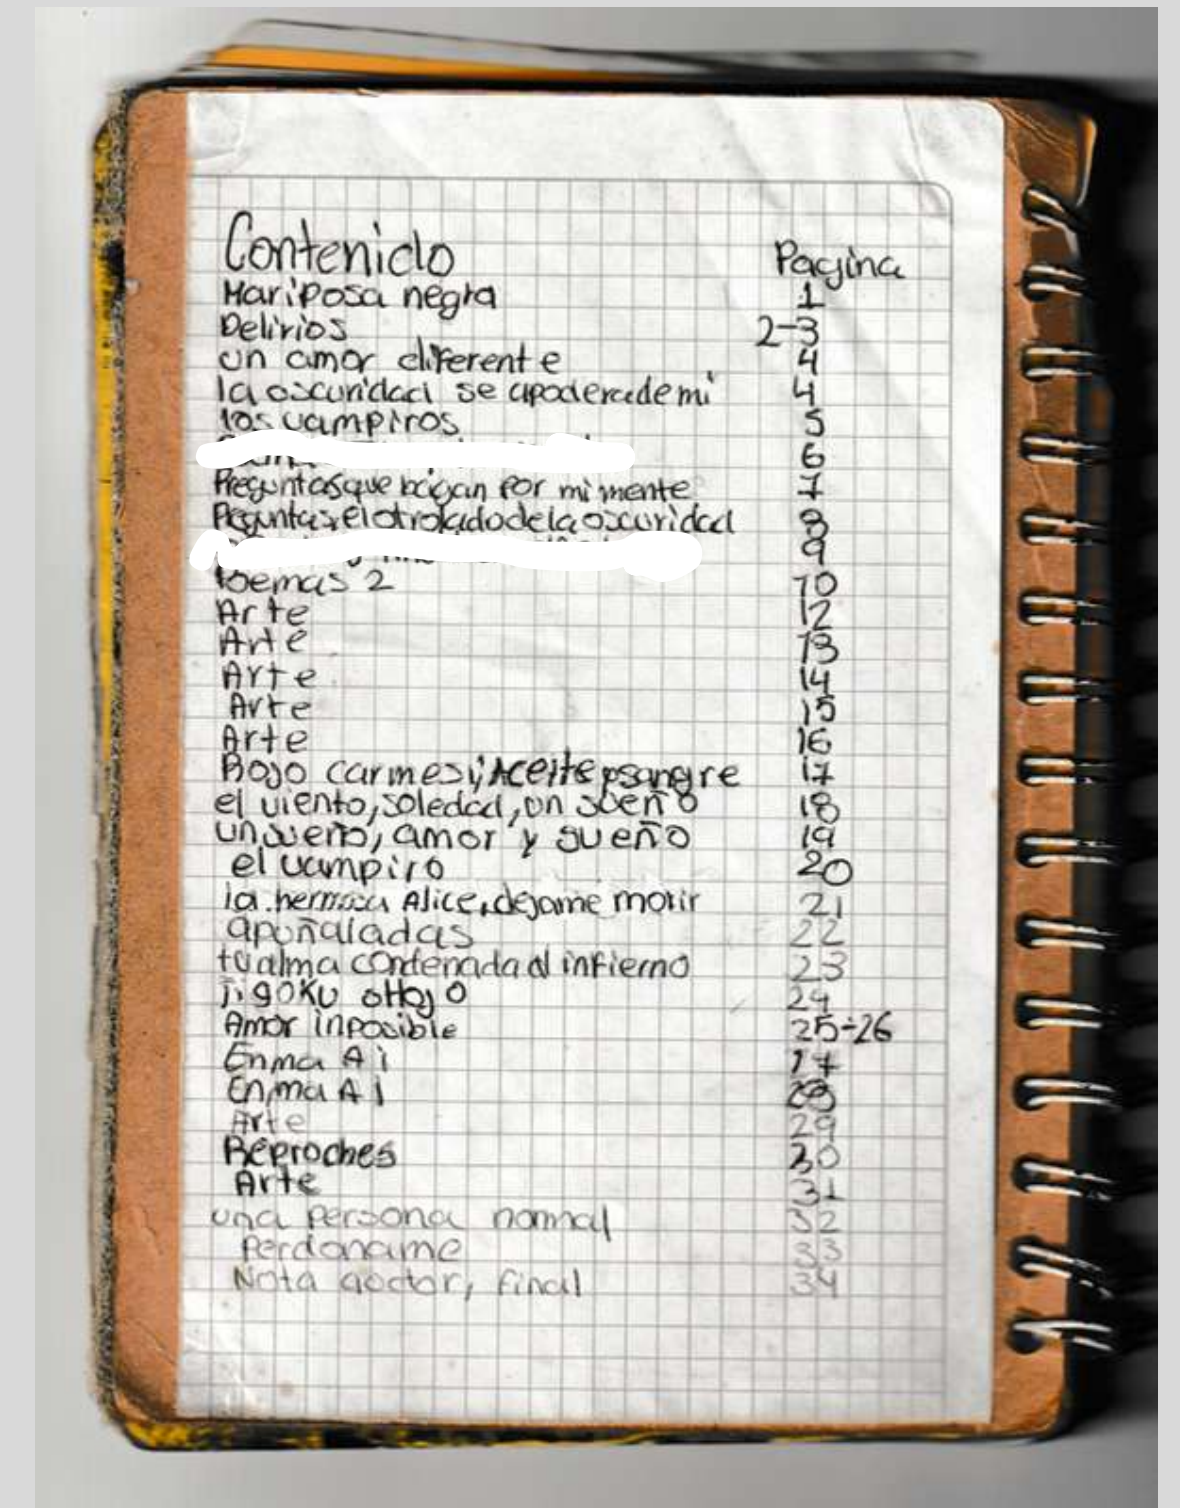 Contenido Pagina
Mariposa negra 1
Delirios 2-3
un amor diferente 4
la oscuridad se apodera de mi 4
los vampiros 5
6
Preguntas que bagan por mi mente 7
Peguntas, el otro lado de la oscuridad 8
9
Poemas 2 10
Arte 12
Arte 13
Arte 14
Arte 15
Arte 16
Rojo carmesi, Aceite y sangre 17
el viento, soledad, un sueño 18
un sueño, amor y sueño 19
el vampiro 20
la hermosa Alice, dejame morir 21
apuñaladas 22
tu alma condenada al infierno 23
Jigoku 24
Amor inposible 25-26
Enma Ai
Enma Ai 28
Arte 29
Reproches 30
Arte 31
una persona normal 32
Perdoname 33
Nota final 34